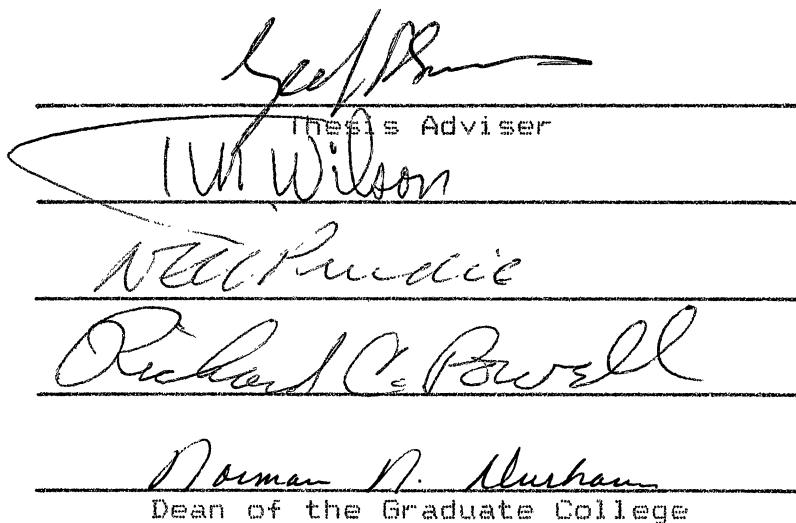 Thesis Adviser
Wilson
Neil Purdie
Richard C. Powell
Norman N. Durham
Dean of the Graduate College